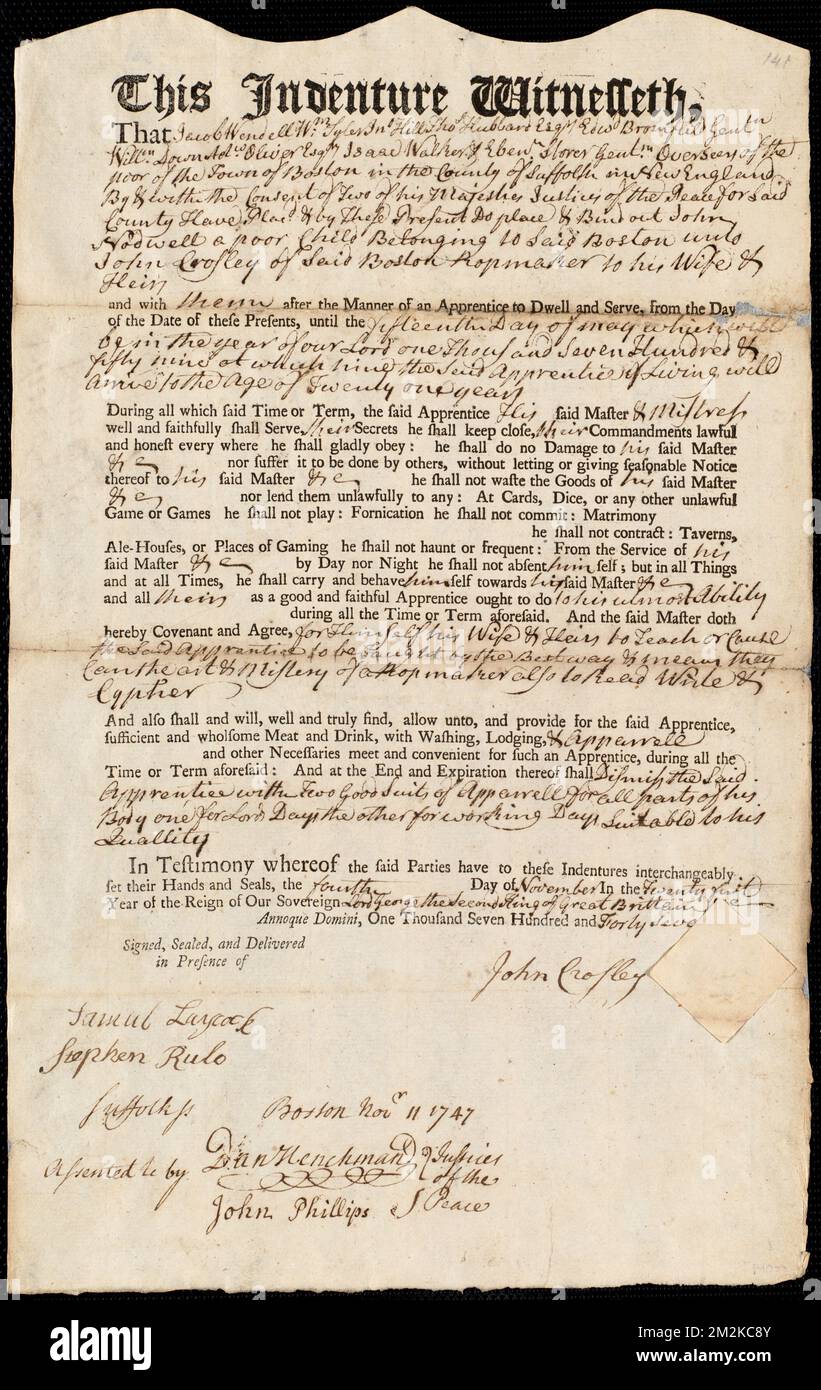 141
This Indenture Witnesseth,
That Jacob Wendell Wm Tyler Jno Hill Thos Hubbard Esqrs Edwd Bromfield Gentn
Willm Down And Oliver Esqrs Isaac Walker & Ebenr Storer Gentn Overseers of the
poor of the Town of Boston in the County of Suffolk in New England
By & with the Consent of Two of his Majesties Justices of the Peace for Said
County Have Plac'd & by These Present Do place & Bind out John
Nodwell a poor Child Belonging to Said Boston unto
John Crosley of Said Boston Ropmaker to his Wife &
Heirs
and with them after the Manner of an Apprentice to Dwell and Serve, from the Day
of the Date of these Presents, until the fifteenth Day of may which will
be in the year of our Lord one Thousand Seven Hundred &
fifty nine at which time the Said Apprentice if Living will
arrive to the Age of Twenty one years
During all which ſaid Time or Term, the ſaid Apprentice His ſaid Maſter & Mistress
well and faithfully ſhall Serve, their Secrets he ſhall keep cloſe, their Commandments lawful
and honeſt every where he ſhall gladly obey: he ſhall do no Damage to his ſaid Maſter
&c nor ſuffer it to be done by others, without letting or giving ſeaſonable Notice
thereof to his ſaid Maſter &c he ſhall not waſte the Goods of his ſaid Maſter
&c nor lend them unlawfully to any: At Cards, Dice, or any other unlawful
Game or Games he ſhall not play: Fornication he ſhall not commit: Matrimony
he ſhall not contract: Taverns,
Ale-Houſes, or Places of Gaming he ſhall not haunt or frequent: From the Service of his
ſaid Maſter &c by Day nor Night he ſhall not abſent him ſelf; but in all Things
and at all Times, he ſhall carry and behave him ſelf towards his ſaid Maſter &c
and all theirs as a good and faithful Apprentice ought to do to his utmost Ability
during all the Time or Term aforeſaid. And the ſaid Maſter doth
hereby Covenant and Agree, for Himself his Wife & Heirs to Teach or Cause
the Said Apprentice to be Taught by the Best way & means they
Can the art & Mistery of a Ropmaker also to Read Write &
Cypher
And alſo ſhall and will, well and truly find, allow unto, and provide for the ſaid Apprentice,
ſufficient and wholſome Meat and Drink, with Waſhing, Lodging, & Apparrell
and other Neceſſaries meet and convenient for ſuch an Apprentice, during all the
Time or Term aforeſaid: And at the End and Expiration thereof ſhall Dismiss the Said
Apprentice with Two Good Suits of Apparrell for all parts of his
Body one for Lords Days the other for working Days Suitable to his
Quallity
In Teſtimony whereof the ſaid Parties have to theſe Indentures interchangeably
ſet their Hands and Seals, the fourth Day of November In the Twenty first
Year of the Reign of Our Sovereign Lord George the Second King of Great Brittain &c
Annoque Domini, One Thouſand Seven Hundred and Forty Seve
Signed, Sealed, and Delivered
in Preſence of
John Crosley
Samul Laycock
Stephen Rulo
Suffolk ss Boston Novr 11 1747
Assented to by Dan Henchman } Justices
of the
John Phillips } Peace
alamy
Image ID: 2M2KC8Y
www.alamy.com